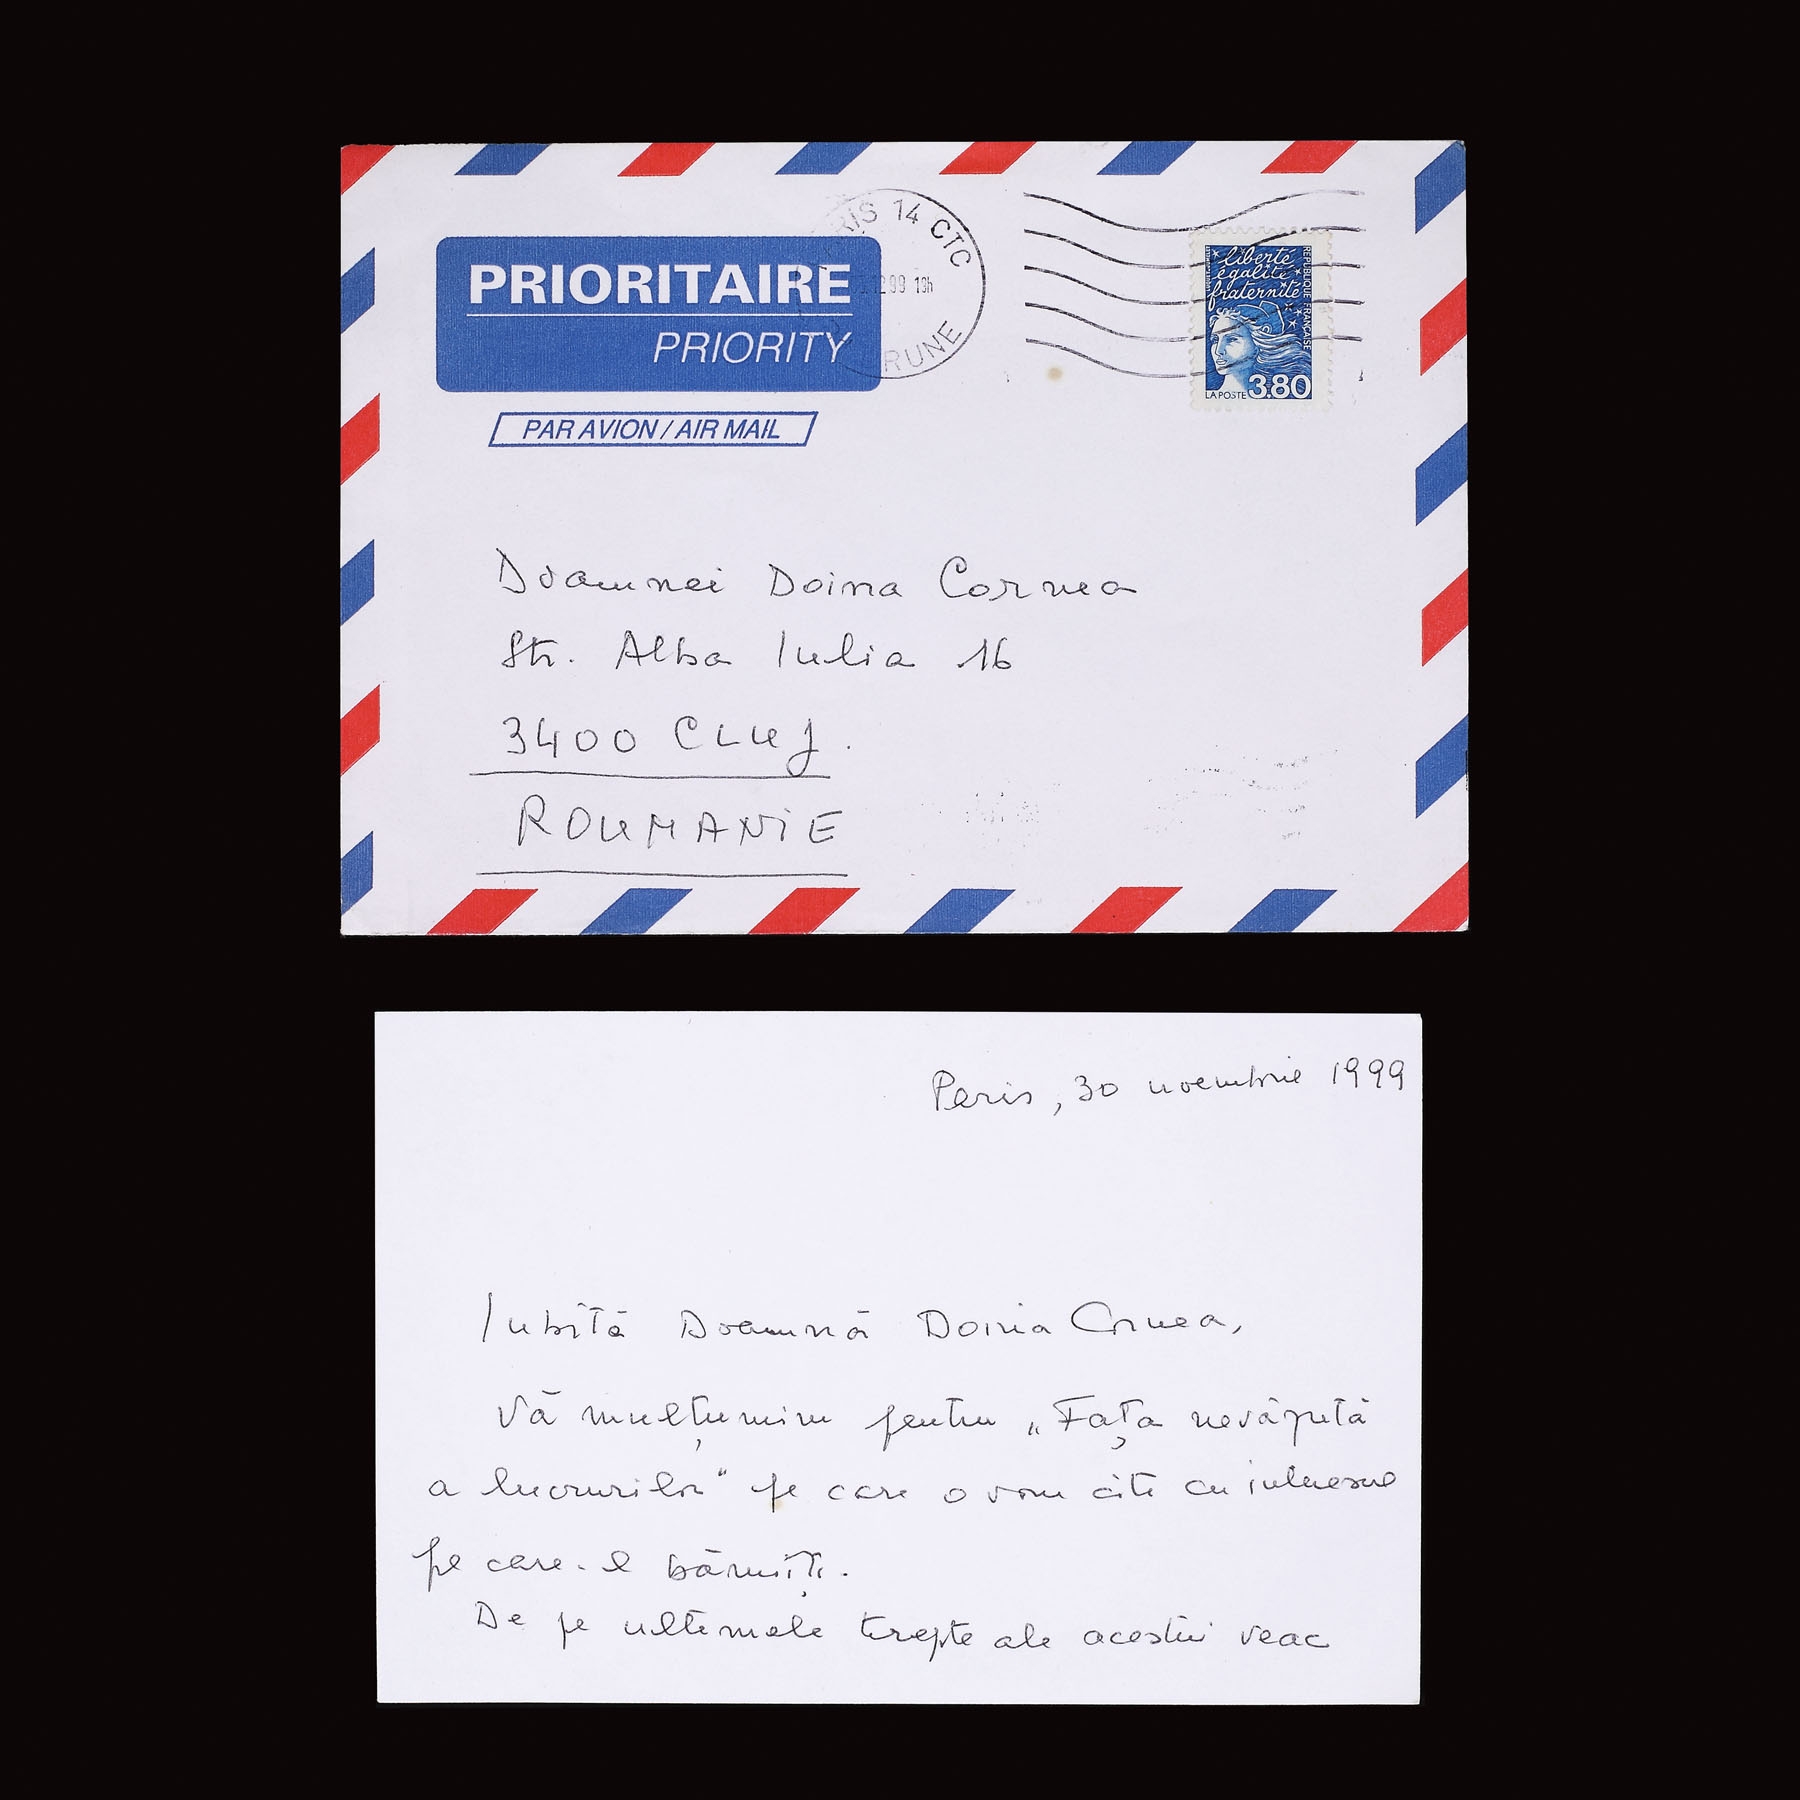 PARIS 14 CTC
12 99 19h
BRUNE
PRIORITAIRE
PRIORITY
PAR AVION / AIR MAIL
liberté
égalité
fraternité
RÉPUBLIQUE FRANÇAISE
LA POSTE 3,80
Doamnei Doina Cornea
Str. Alba Iulia 16
3400 CLUJ.
ROUMANIE
Paris, 30 noembrie 1999
Iubită Doamnă Doina Cornea,
Vă mulțumim pentru „Fața nevăzută
a lucrurilor" pe care o vom citi cu interesul
pe care-l bănuiți.
De pe ultimele trepte ale acestui veac